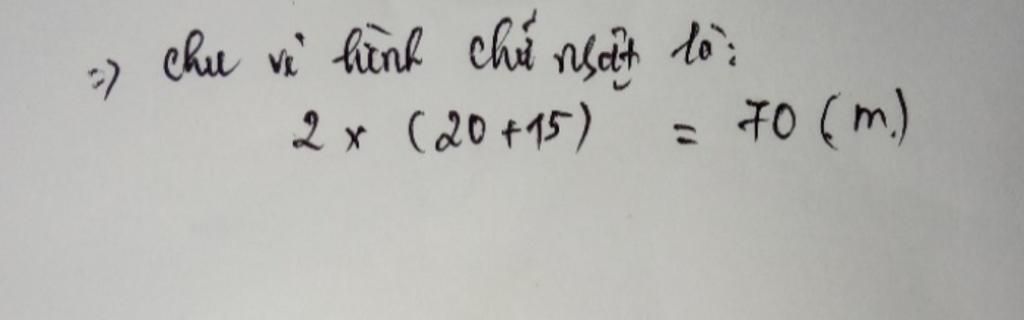 => chu vi hình chữ nhật là:
2 x (20 + 15) = 70 (m)